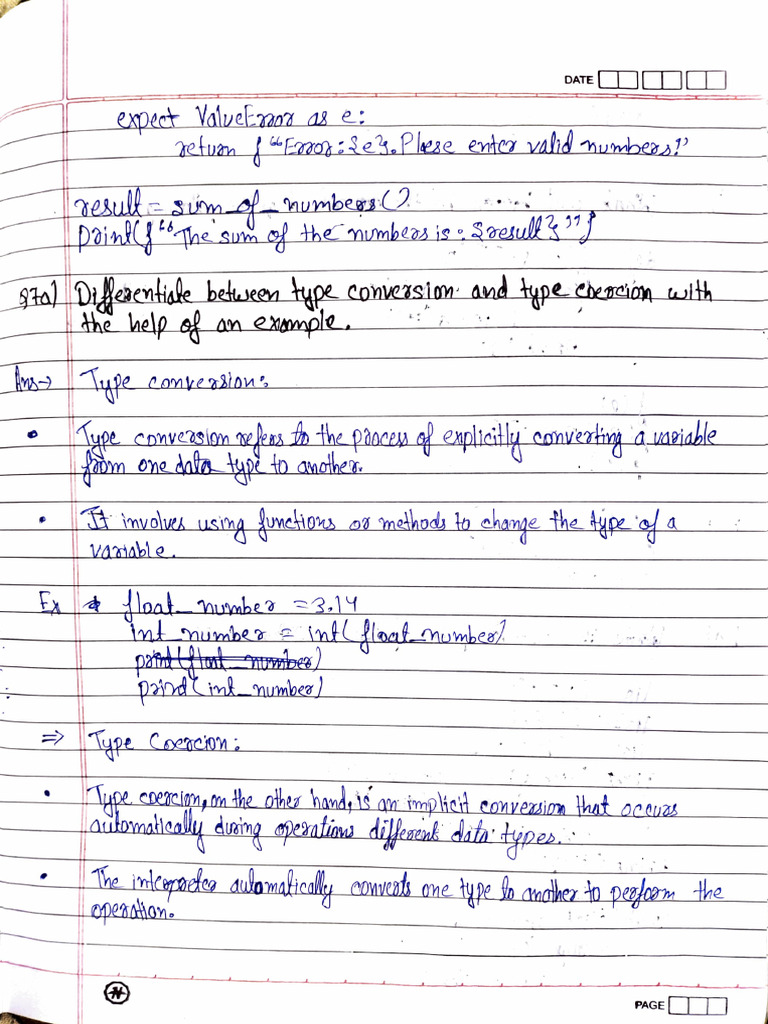 DATE
expect ValueError as e:
return f "Error: {e}. Plese enter valid numbers!"
result = sum_of_numbers()
print(f "The sum of the numbers is: {result}")
Q7a) Differentiate between type conversion and type coercion with
the help of an example.
Ans→ Type conversion:
• Type conversion refers to the process of explicitly converting a variable
from one data type to another.
• It involves using functions or methods to change the type of a
variable.
Ex float_number = 3.14
int_number = int(float_number)
print(float_number)
print(int_number)
⇒ Type Coercion:
• Type coercion, on the other hand, is an implicit conversion that occurs
automatically during operations different data types.
• The interpreter automatically converts one type to another to perform the
operation.
N
PAGE